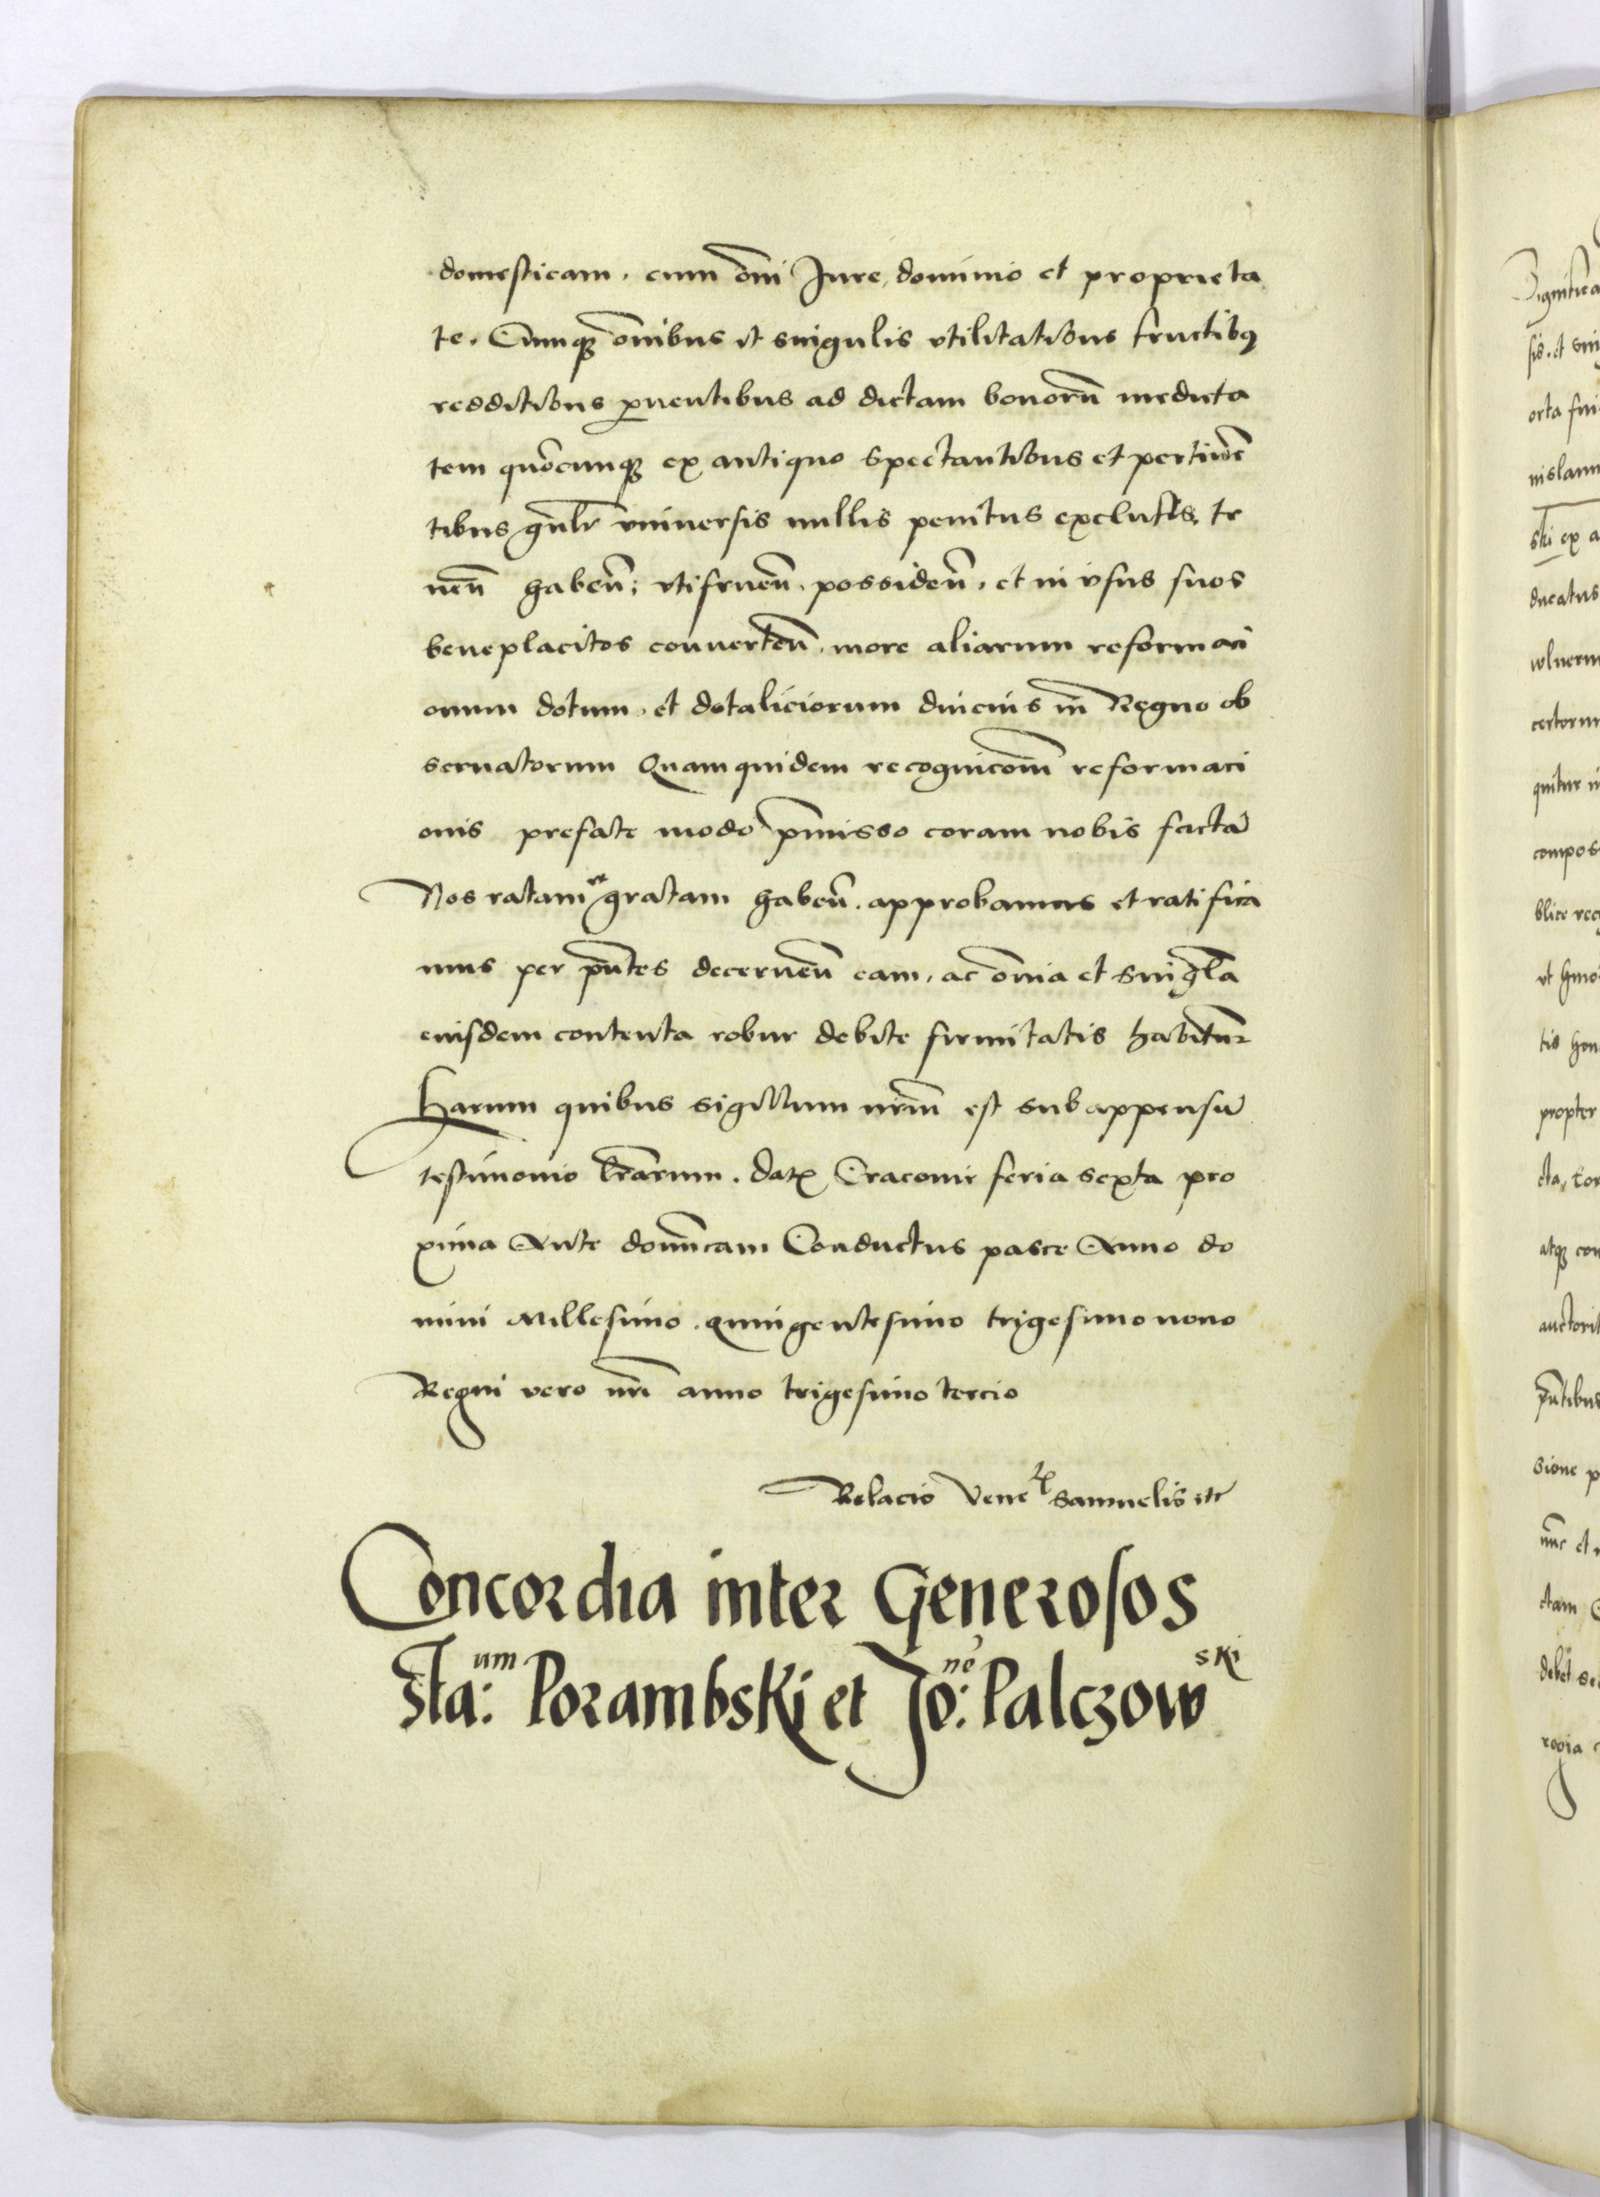 domesticam. cum om̄i Jure, dominio et proprieta
te. Cumq; om̄ibus et singulis vtilitatibus fructibꝯ
redditibus ꝓuentibus ad dictam bonorū medieta
tem quōcunq; ex antiquo spectantibus et pertinē
tibus gn̄lr vniuersis nullis penitus exclusis, te
neñ habeñ, vtifrueñ. possideñ. et in vsus suos
beneplacitos conuerteñ. more aliarum reformaci
onum dotum et dotaliciorum diucius in Regno ob
seruatorum Quamquidem recognicōm̄ reformaci
onis prefate modo p̄misso coram nobis factā
Nos ratam et gratam habeñ. approbamus et ratifica
mus per p̄ntes decerneñ eam, ac om̄ia et singl̄a
eiusdem contenta robur debite firmitatis habitur̄
Harum quibus sigillum nr̄m est subappensū
testimonio lr̄arum. Datꝭ Cracouie feria sexta pro
xima Ante domīcam Conductus pasce Anno do
mini Millesimo. quingentesimo trigesimo nono
Regni vero nr̄i anno trigesimo tercio
Relacio Vene Samuelis etc
Concordia inter Generosos
Sta:um Porambski et Jo:ne Palczowski
Significa
sis. et
orta fui
nislaum
ski ex a
ducatus
certorum
quitur
compos
propter
cta,
atq; con
p̄ntibus
sione p
nunc et
ctam
debet